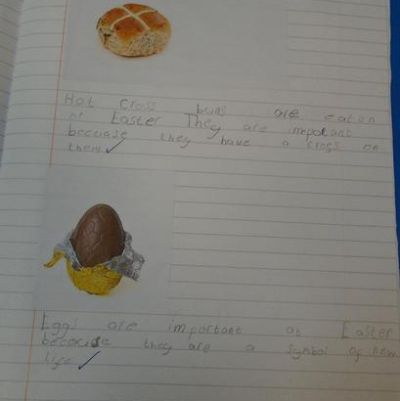 Hot cross buns are eaten
at Easter They are impotant
becuase they have a cross on
them
Eggs are important at Easter
becacise they are a symbol of new
life